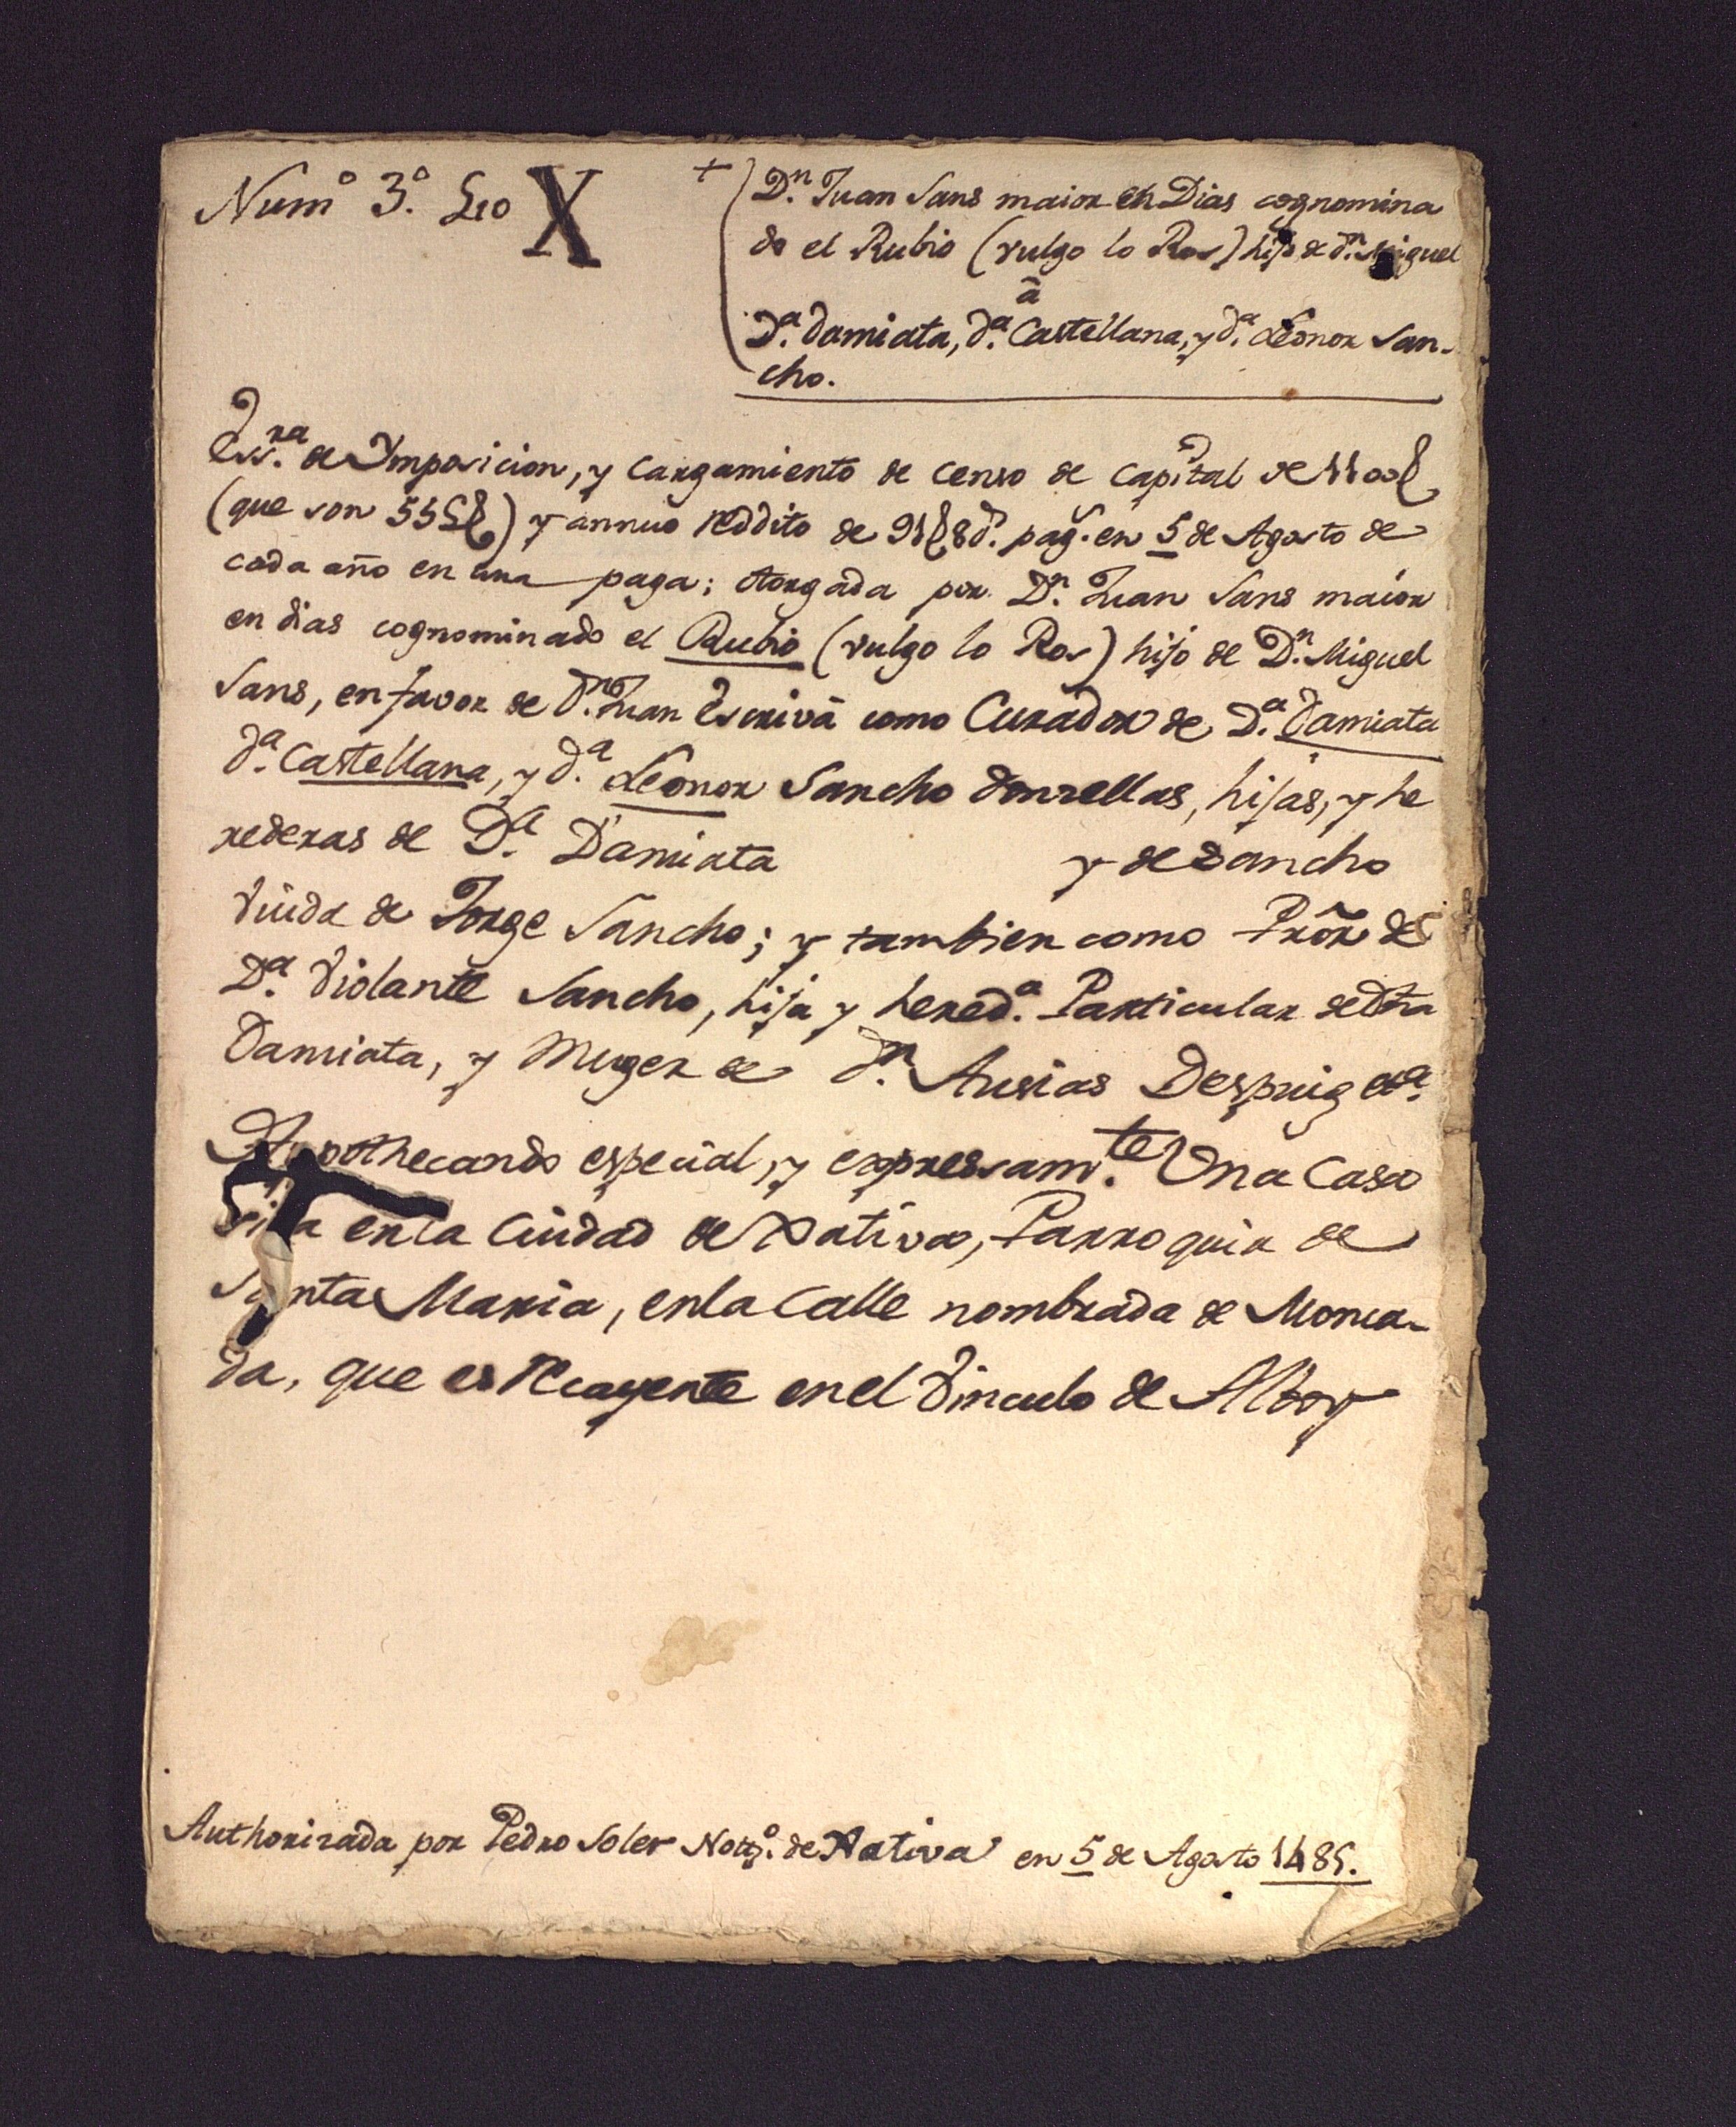 Num.º 3.º Lio X
+
D.n Juan Sans maior en Dias cognomina
do el Rubio (vulgo lo Ros) hijo de d.n Miguel
â
D.a Damiata, d.a Castellana, y d.a Leonor San-
cho.
Ess.ra de Ymposicion, y cargamiento de censo de capital de 1100
(que son 55) y annuo reddito de 91 8 d.s pag.s en 5 de Agosto de
cada año en una paga; otorgada por D.n Juan Sans maior
en dias cognominado el Rubio (vulgo lo Ros) hijo de D.n Miguel
Sans, en favor de d.n Juan Escrivà como Curador de D.a Damiata
d.a Castellana, y d.a Leonor Sancho donzellas, hijas, y he
rederas de D.a Damiata y de Sancho
viuda de Jorge Sancho; y tambien como Prõr de
D.a Violante Sancho, hija y hered.a Particular de dha
Damiata, y Muger de d.n Ausias Despuig
Hypothecando especial, y expressam.te Una Casa
sita en la Ciudad de Xativa, Parroquia de
Santa Maria, en la Calle nombrada de Monca-
da, que es recayente en el Vinculo de Alboy
Authorizada por Pedro Soler Nott.º de Xativa en 5 de Agosto 1485.